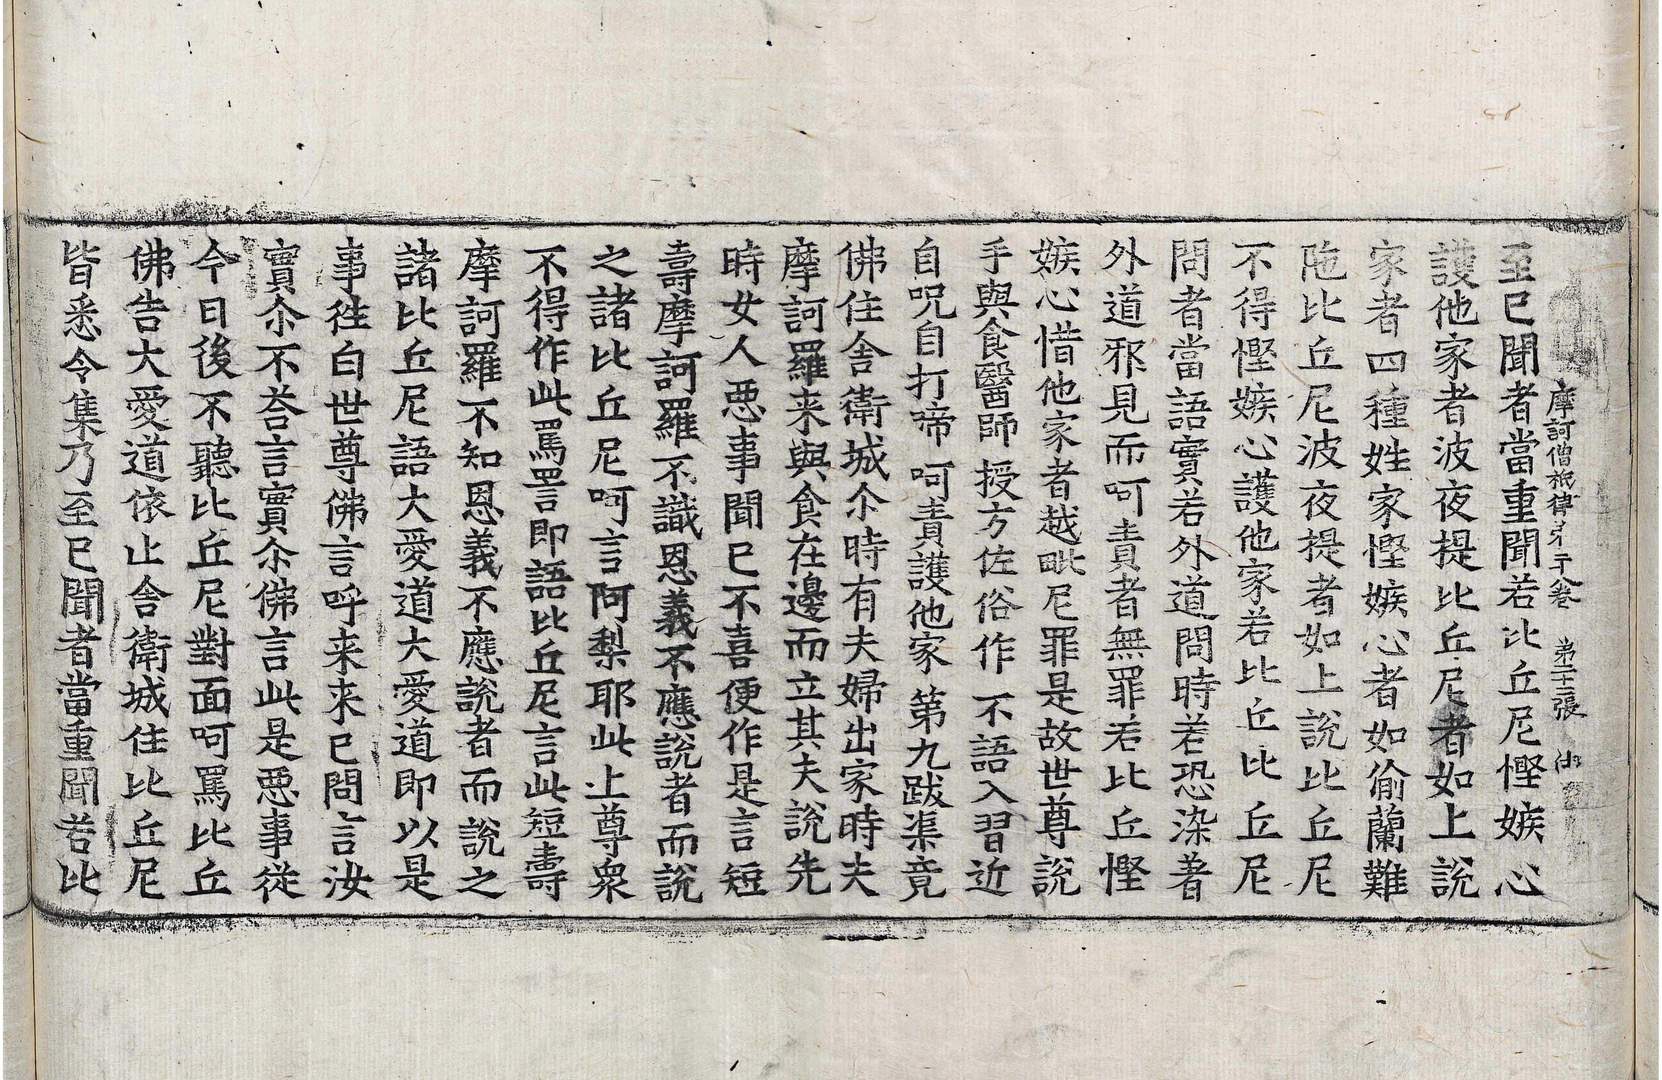 摩訶僧祇律第三十卷 第二十二張 仙
至已聞者當重聞若比丘尼慳嫉心
護他家者波夜提比丘尼者如上說
家者四種姓家慳嫉心者如偷蘭難
陁比丘尼波夜提者如上說比丘尼
不得慳嫉心護他家若比丘比丘尼
問者當語實若外道問時若恐染著
外道邪見而呵責者無罪若比丘慳
嫉心惜他家者越毗尼罪是故世尊說
手與食醫師 授方佐俗作 不語入習近
自呪自打啼 呵責護他家 第九跋渠竟
佛住舍衛城尒時有夫婦出家時夫
摩訶羅来與食在邊而立其夫說先
時女人惡事聞已不喜便作是言短
壽摩訶羅不識恩義不應說者而說
之諸比丘尼呵言阿梨耶此上尊衆
不得作此罵詈即語比丘尼言此短壽
摩訶羅不知恩義不應說者而說之
諸比丘尼語大愛道大愛道即以是
事徃白世尊佛言呼来来已問言汝
實尒不荅言實尒佛言此是惡事從
今日後不聽比丘尼對面呵罵比丘
佛告大愛道依止舍衛城住比丘尼
皆悉令集乃至已聞者當重聞若比